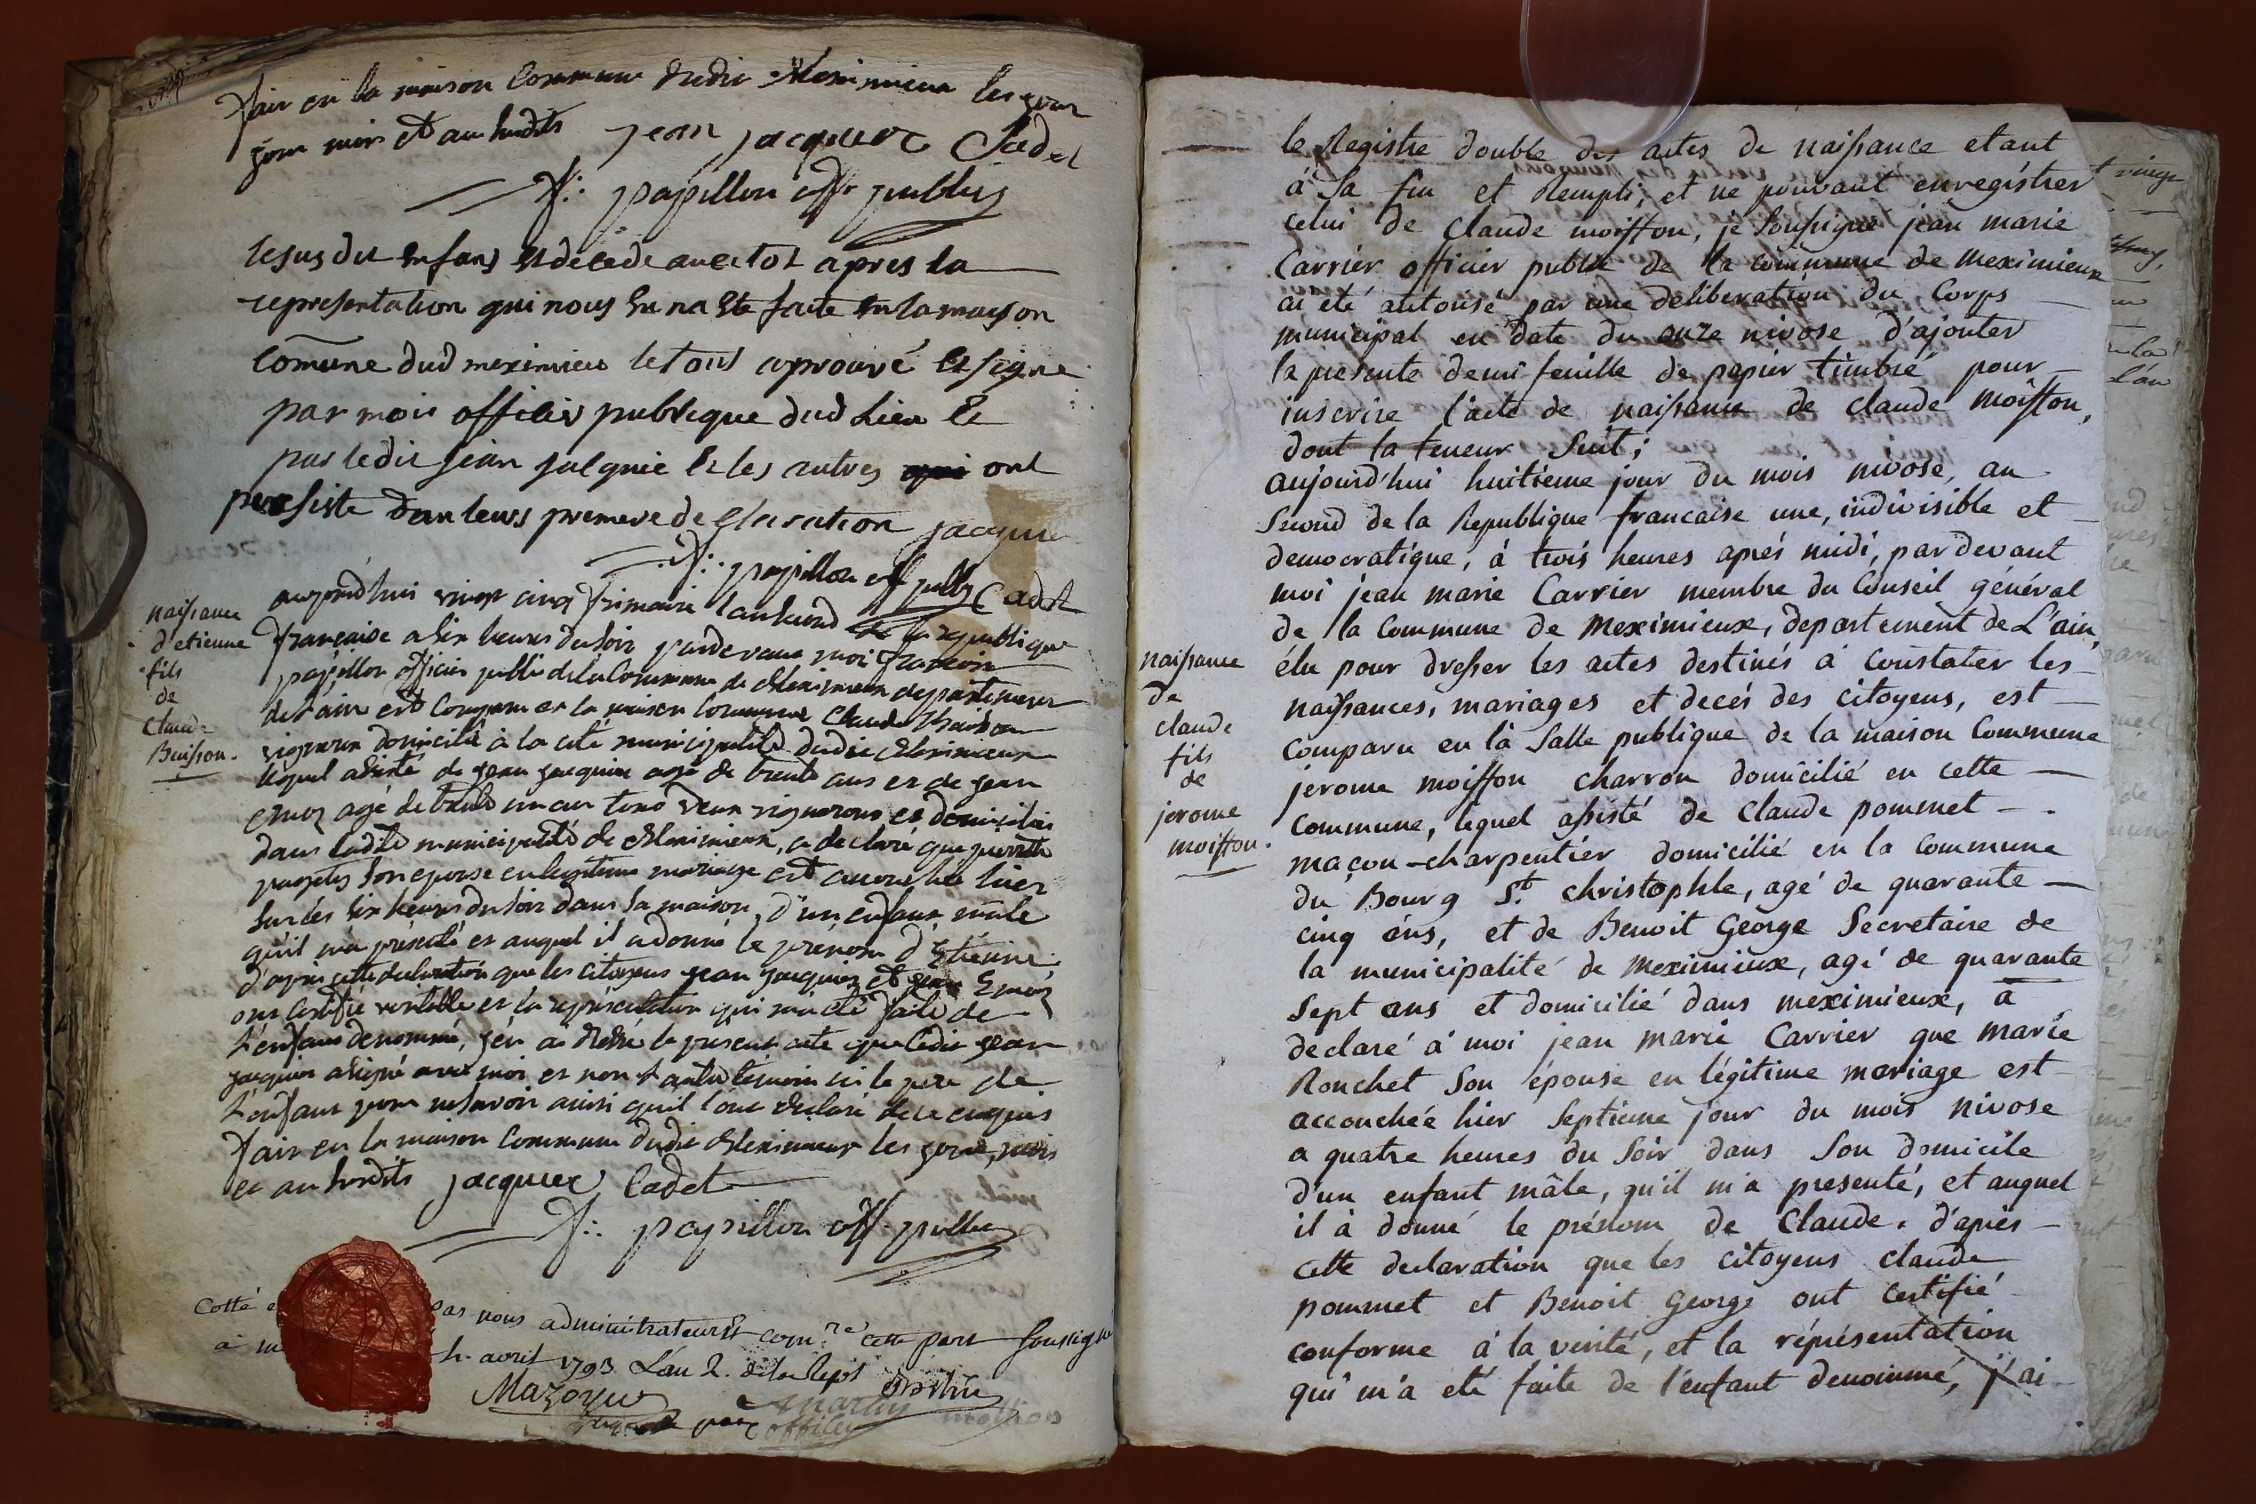 fait en la maison Commune dudit Meximieux les jour
jour mois et an susdits jean jacquer Cadet
f: papillon off publis
lesus dit enfans est decede aucitot apres la
representation qui nous en na ete faite en la mayson
comune dud meximieu le tout aprouvé et signe
par moii officier publique dud lieu et
par ledit jean jacquie et les autres qui ont
persiste dan leurs premiere declaration jacquie
f: papillon off publis Cadet
naissance
d'etienne
fils
de
Claude
Buisson.
aujourd'hui vingt cinq frimaire l'an second de la republique
française a six heures du soir pardevant moi françois
papillon officier public de la Commune de Meximieux departement
de l'ain est Comparu en la maison Commune Claude Buisson
vigneron domicilié à la cité municipalité dudit Meximieux
lequel assisté de jean jacquier agé de trente ans et de jean
agé de trente un an tous deux vignerons et domiciliés
dans ladite municipalité de Meximieux, a declaré que pierrette
son epouse en legitime mariage est accouchée hier
sur les six heures du soir dans sa maison, d'un enfant mâle
qu'il m'a présenté et auquel il a donné le prénom d'Etienne.
d'apres cette declaration que les citoyens jean jacquier et jean
ont certifié veritable et la representation qui m'a été faite de
l'enfant denommé, j'en ai dressé le present acte que ledit jean
jacquier a signé avec moi et non l'autre témoin ni le pere de
l'enfant pour ne savoir ainsi qu'il l'ont declaré de ce enquis
fait en la maison Commune dudit Meximieux les jour, mois
et an susdits jacquier Cadet
f: papillon off. public
Cotté par nous administrateurs cette part soussigné
a avril 1793 L'an 2. de la Rep
Mazoyer
le Registre double des actes de naissance etant
á sa fin et Rempli; et ne pouvant enregistrer
celui de Claude moisson, je soussigné jean marie
Carrier officier public de la commune de meximieux
ai eté autorisé par une deliberation du Corps
municipal en date du onze nivose d'ajouter
la presente demi feuille de papier timbré pour
inscrire l'acte de naissance de claude moisson,
dont la teneur suit;
naissance
de
claude
fils
de
jerome
moisson.
aujourd'hui huitieme jour du mois nivose, an
second de la Republique francaise une, indivisible et
democratique, à trois heures aprés midi, par devant
moi jean marie Carrier membre du Conseil général
de la commune de Meximieux, departement de L'ain,
élu pour dresser les actes destinés à constater les
naissances, mariages et decés des citoyens, est
comparu en là Salle publique de la maison Commune
jerome moisson charron domicilié en cette
commune, lequel assisté de Claude pommet
maçon-charpentier domicilié en la Commune
du Bourg St christophle, agé de quarante
cinq ans, et de Benoit George Secretaire de
la municipalité de meximieux, agé de quarante
sept ans et domicilié dans meximieux, à
declaré à moi jean marie Carrier que marie
Ronchet son épouse en légitime mariage est
accouchée hier septieme jour du mois nivose
a quatre heures du soir dans son domicile
d'un enfant mâle, qu'il m'a presenté, et auquel
il à donné le prénom de Claude. d'après
cette declaration que les citoyens claude
pommet et Benoit George ont certifié
conforme à la verité, et la réprésentation
qui m'a eté faite de l'enfant denommé, j'ai